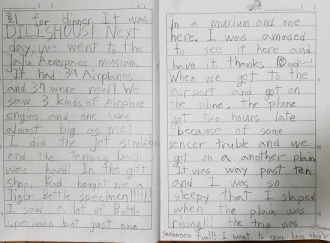 for dinner. It was
DILLSHOUS! Next
day, we went to the
Jeju Aerospace musium.
It had 39 Airplanes
and 39 were real! We
saw 3 kinds of Airplane
engins and one was
almost big as me!
I did the jet simlator
and the terning back
was hard! In the gift
shop, Dad bought me a
Tiger bettle specimen!!!!!!
I saw a lot of bettle
specimen but just one
in a musium and one
here. I was amased
to see it here and
have it thanks
When we got to the
airport and got on
the plane, the plane
got two hours late
because of some
sencer truble and we
got on a another plane
It was way past ten
and I was so
sleepy that I sleped
when the plain was
rising!! the trip was
fun!!! I want to come here